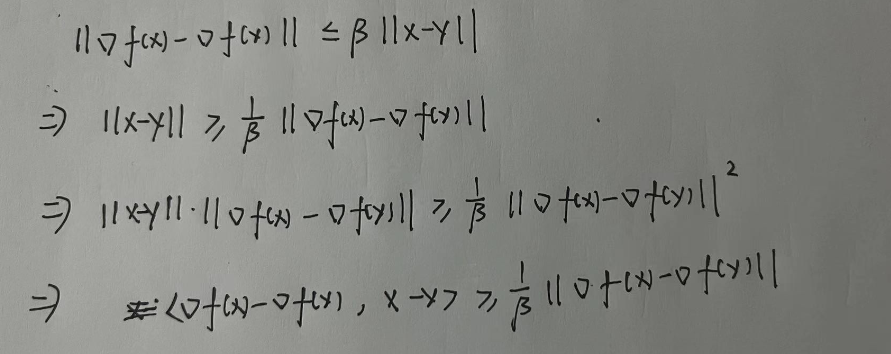 ||∇f(x)-∇f(y)|| ≤ β||x-y||
⇒ ||x-y|| ≥ 1/β ||∇f(x)-∇f(y)||
⇒ ||x-y||·||∇f(x)-∇f(y)|| ≥ 1/β ||∇f(x)-∇f(y)||²
⇒ <∇f(x)-∇f(y), x-y> ≥ 1/β ||∇f(x)-∇f(y)||